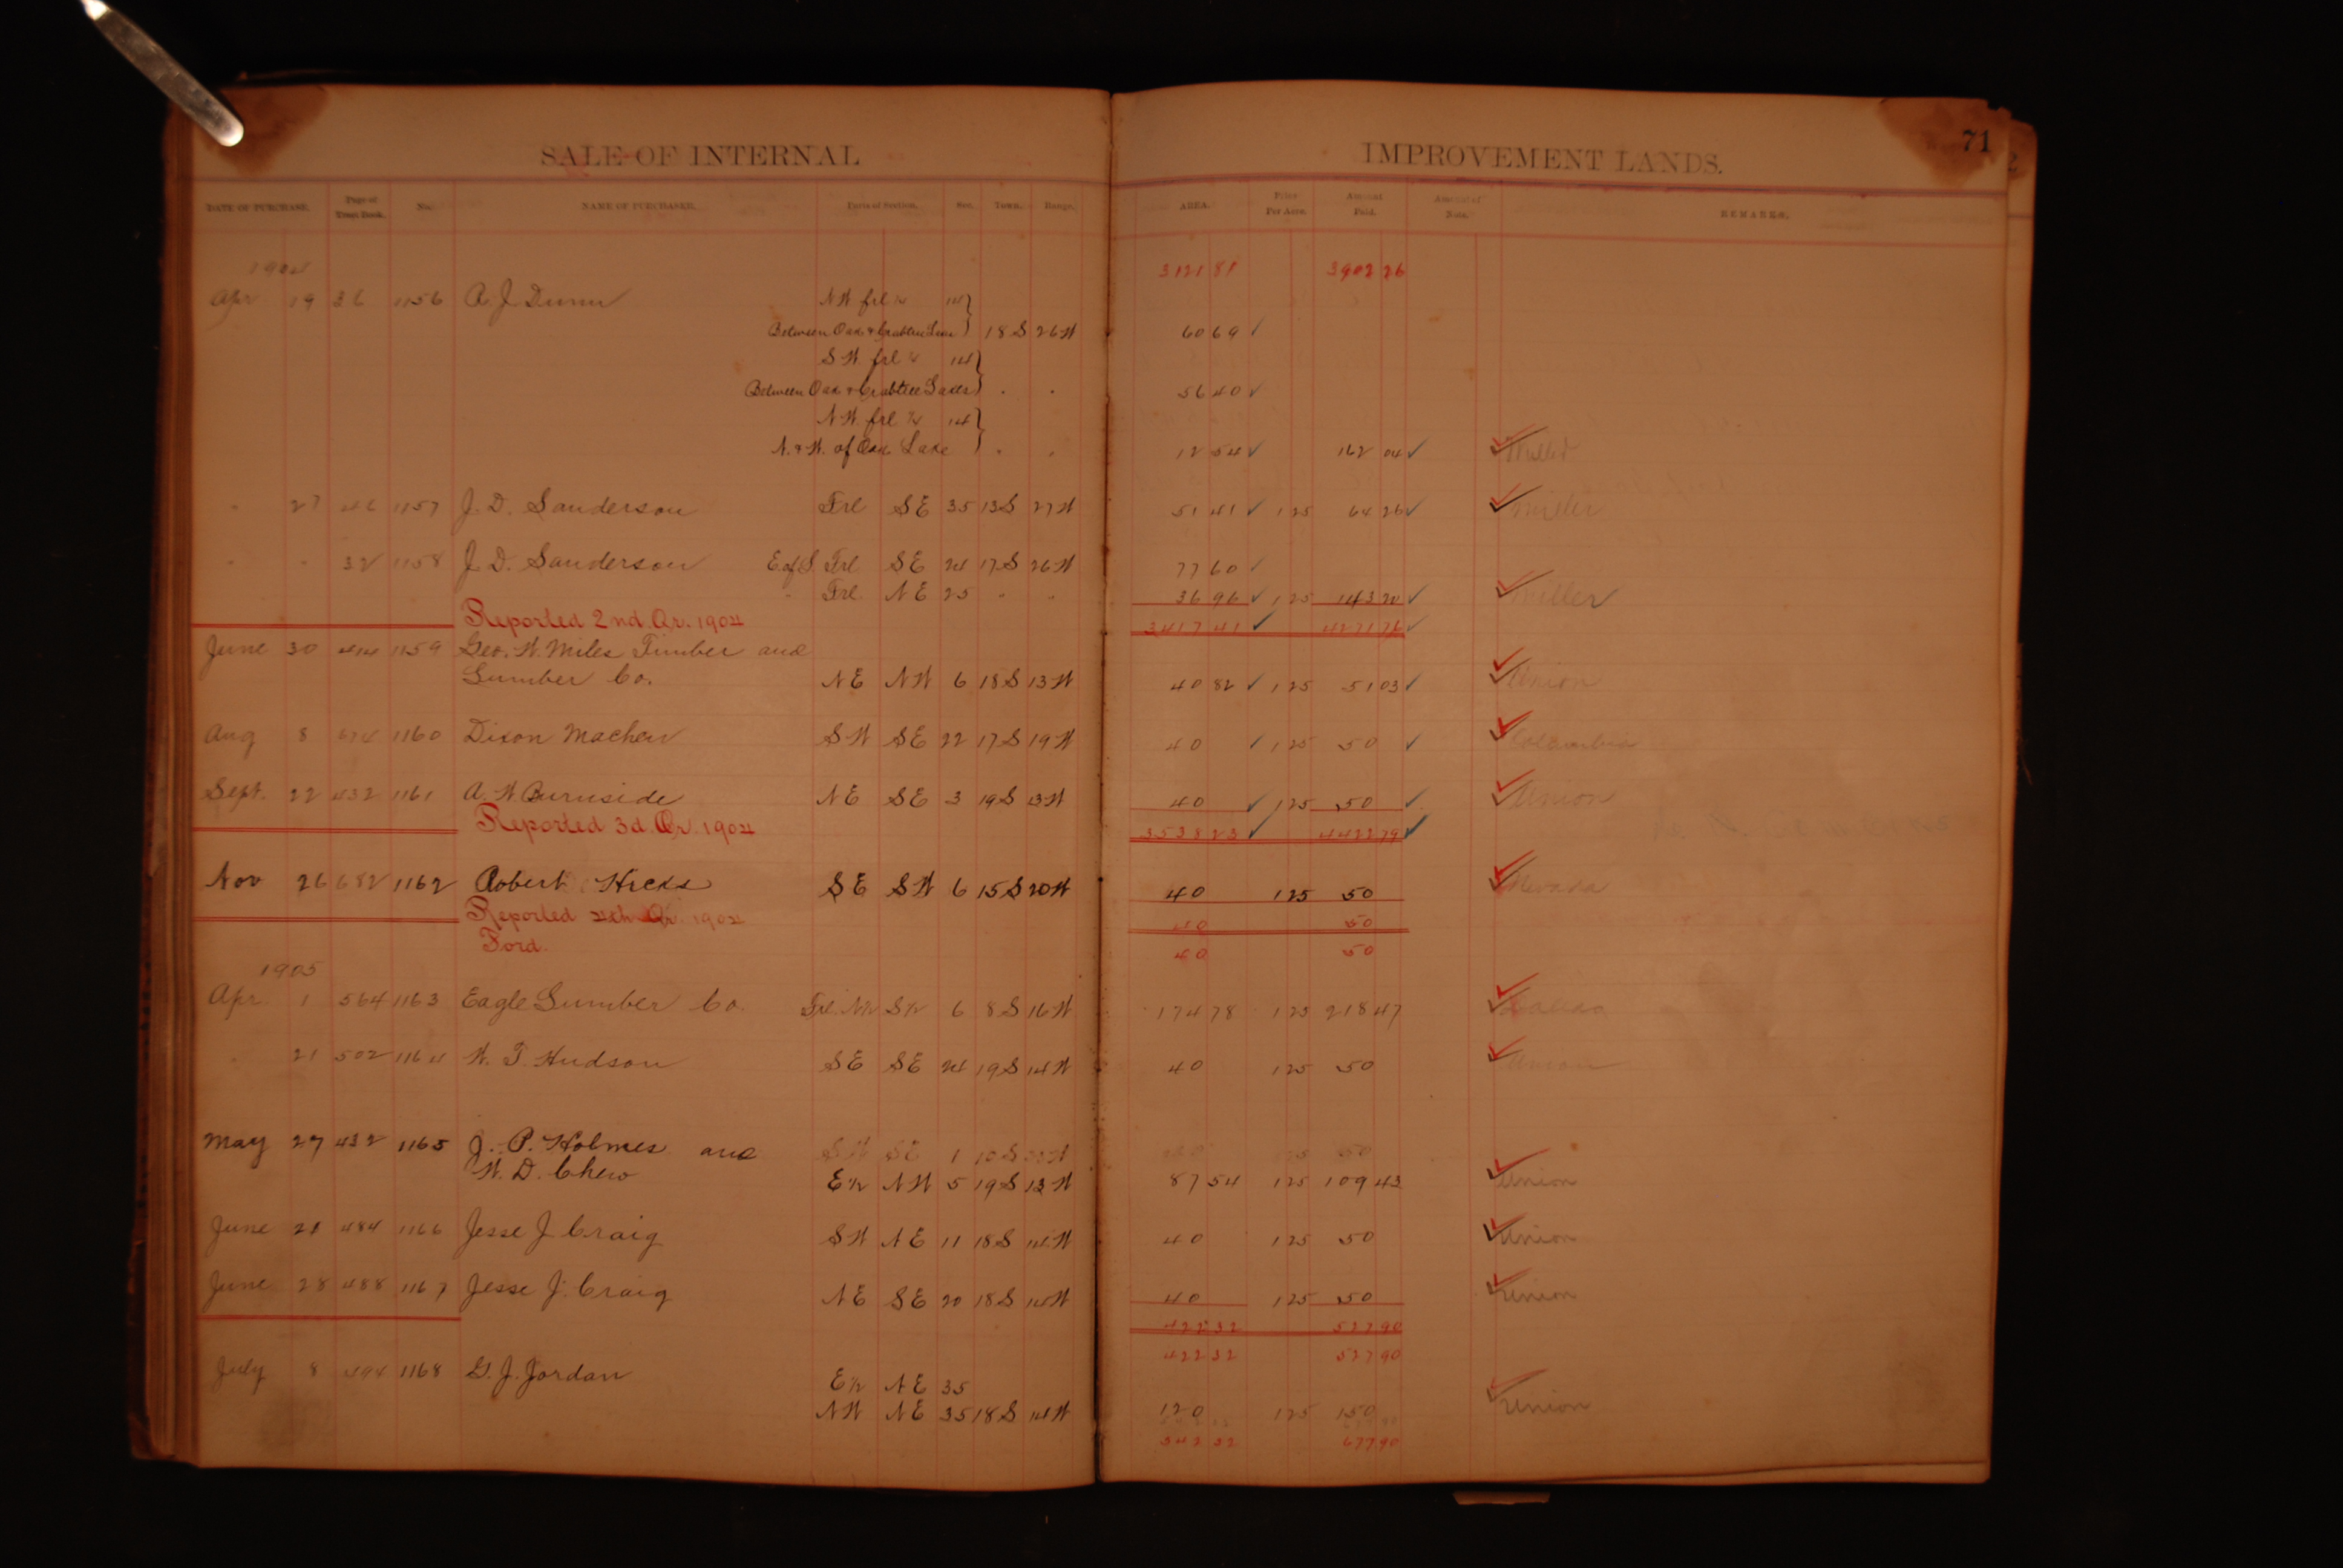 71
SALE OF INTERNAL IMPROVEMENT LANDS.
DATE OF PURCHASE. Page of Tract Book. No. NAME OF PURCHASER. Parts of Section. Sec. Town. Range. AREA. Price Per Acre. Amount Paid. Amount of Note. REMARKS.
1904 3121 81 3902 26
Apr 19 36 1156 R. J. Dunn N W frl ¼ 14
Between Oak & Crabtree Lakes 18 S 26 W 60 69 ✓
S W frl ¼ 14
Between Oak & Crabtree Lakes " " 56 40 ✓
N W frl ¼ 14
N. & W. of Oak Lake " " 12 54 ✓ 162 04 ✓ Miller
" 27 46 1157 J. D. Sanderson Frl S E 35 13 S 27 W 51 41 ✓ 1 25 64 26 ✓ Miller
" " 32 1158 J. D. Sanderson E of S Frl S E 24 17 S 26 W 77 60 ✓
" Frl N E 25 " " 36 96 ✓ 1 25 143 20 ✓ Miller
Reported 2nd. Qr. 1904 3417 41 ✓ 4271 76 ✓
June 30 414 1159 Geo. W. Miles Timber and
Lumber Co. N E N W 6 18 S 13 W 40 82 ✓ 1 25 51 03 ✓ Union
Aug 8 674 1160 Dixon Machen S W S E 22 17 S 19 W 40 ✓ 1 25 50 ✓ Columbia
Sept. 22 432 1161 A. W Burnside N E S E 3 19 S 13 W 40 ✓ 1 25 50 ✓ Union
Reported 3d. Qr. 1904 3538 23 ✓ 4422 79 ✓
Nov 26 682 1162 Robert Hicks S E S W 6 15 S 20 W 40 1 25 50 Nevada
Reported 4th Qr. 1904 40 50
Ford. 40 50
1905
Apr 1 564 1163 Eagle Lumber Co. Frl. N½ S½ 6 8 S 16 W 174 78 1 25 218 47 Dallas
" 21 502 1164 W. T. Hudson S E S E 24 19 S 14 W 40 1 25 50 Union
May 27 432 1165 J. P. Holmes and S W S E 1 50
W. D. Chew E½ N W 5 19 S 13 W 87 54 1 25 109 43 Union
June 21 484 1166 Jesse J Craig S W N E 11 18 S 14 W 40 1 25 50 Union
June 28 488 1167 Jesse J. Craig N E S E 20 18 S 14 W 40 1 25 50 Union
422 32 527 90
422 32 527 90
July 8 494 1168 G. J. Jordan E½ N E 35
N W N E 35 18 S 14 W 120 1 25 150 Union
542 32 677 90